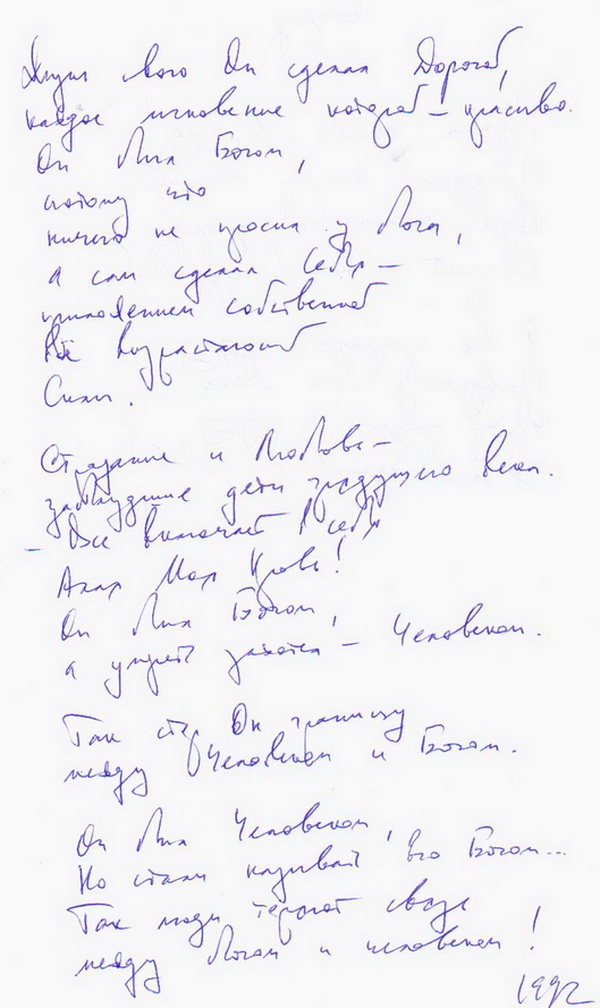 Жизнь свою Он сделал Дорогой,
каждое мгновение которой – красиво.
Он был Богом,
потому что
ничего не просил у Бога,
а сам сделал Себя –
собственной
Всё возрастающей
Силы.
Страдание и Любовь –
заблудшие дети грядущего века.
– Все включает в себя
Алая Моя Кровь!
Он был Богом,
а умереть захотел – Человеком.
Так стёр Он границу
между Человеком и Богом.
Он был Человеком,
Но стали называть Его Богом...
Так люди теряют связь
между Богом и человеком!
1992